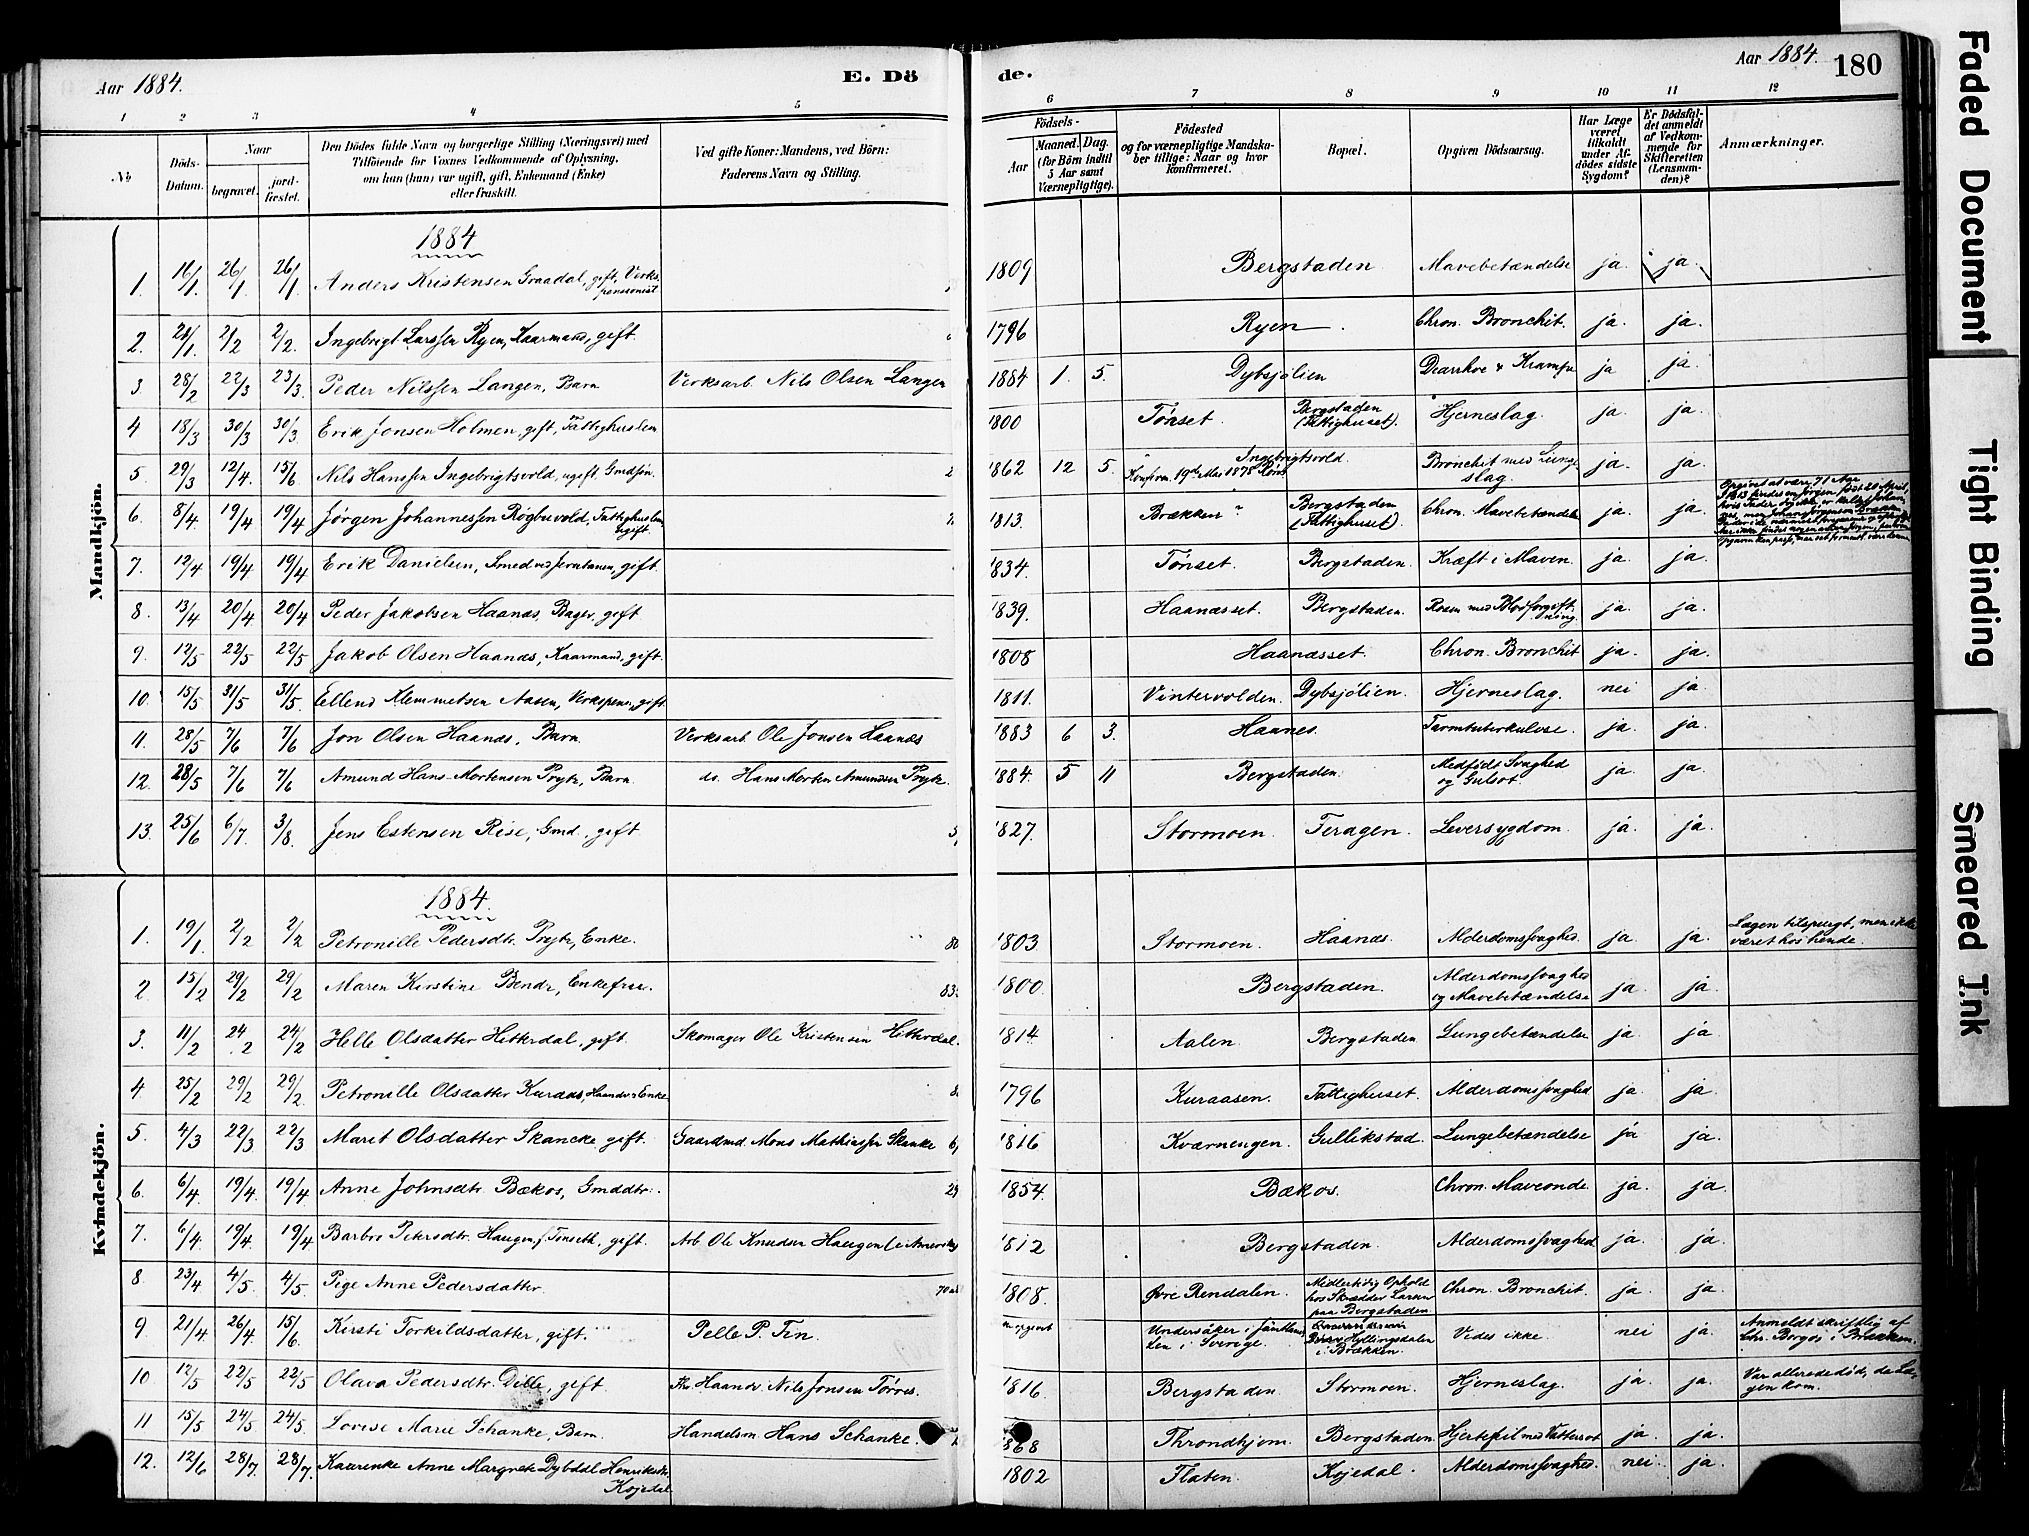 Aar 1884.
E. Dö
de.
Aar 1884.
180
1 2 3 4 5 6 7 8 9 10 11 12
No
Döds-Datum.
Naar
begravet.
jord-fæstet.
Den Dödes fulde Navn og borgerlige Stilling (Næringsvei) med
Tilföiende for Voxnes Vedkommende af Oplysning,
om han (hun) var ugift, gift, Enkemand (Enke)
eller fraskilt.
Ved gifte Koner: Mandens, ved Börn:
Faderens Navn og Stilling.
Födsels-
Aar
Maaned. Dag.
(for Börn indtil
5 Aar samt
Værnepligtige).
Födested
og for værnepligtige Mandska-
ber tillige: Naar og hvor
konfirmeret.
Bopæl.
Opgiven Dödsaarsag.
Har Læge
været
tilkaldt
under Af-
dödes sidste
Sygdom?
Er Dödsfal-
det anmeldt
af Vedkom-
mende for
Skifteretten
(Lensman-
den)?
Anmærkninger.
Mandkjön.
1884
1. 16/1. 26/1 26/1 Anders Kristensen Graadal, gift, Verks-pensionist 1809 Bergstaden Mavebetændelse ja. ja.
2. 28/1 2/2 2/2. Ingebrigt Larssen Ryen, Kaarmand, gift. 1796 Ryen Chron. Bronchit. ja. ja.
3. 28/2 22/3 23/3. Peder Nilssen Langen, Barn Verksarb. Nils Olsen Langen 1884 1. 5. Dybsjölien Diarrhoe & Krampe ja ja.
4 18/3 30/3 30/3. Erik Jonsen Holmen, gift, Fattighuslem 1800 Tönset. Bergstaden (Fattighuset). Hjerneslag. ja. ja.
5. 29/3 12/4. 15/6 Nils Hanssen Ingebrigtsvold, ugift. Gmdsön. 1862 12 5. Ingebrigtsvold. Konfirm. 19de Mai 1878 Röros Bronchit med Lunge-slag. ja. ja.
6. 8/4 19/4 19/4 Jörgen Johannessen Rögbuvold, Fattighuslem ugift. 1813. Brækken Bergstaden (Fattighuset). Chron. Mavebetændelse ja. ja. Opgivet at være 71 Aar.
7. 12/4 19/4 19/4 Erik Danielsen, Smed, gift. 1834. Tönset. Bergstaden. Kræft i Maven. ja. ja.
8. 13/4 20/4 20/4 Peder Jakobsen Haanæs, Bager, gift 1839. Haanæsset. Bergstaden. Rosen med Blodforgift-ning. ja. ja.
9. 12/5 22/5 22/5 Jakob Olsen Haanæs, Kaarmand, gift. 1808 Haanæsset. Chron. Bronchit ja. ja.
10. 15/5 31/5 31/5. Ellend Klemmetsen Aasen, Verkspens., gift. 1811. Vintervolden. Dybsjölien. Hjerneslag. nei ja.
11. 28/5 7/6 7/6 Jon Olsen Haanæs, Barn. Verksarb. Ole Jonsen Haanæs 1883 6 3. Haanes. Tarmtuberkulose. ja. ja.
12. 28/5 7/6 7/6 Amund Hans Mortensen Prytz, Barn do. Hans Morten Amundsen Prytz. 1884. 5 11 Bergstaden. Medfödt Svaghed og Gulsot. ja ja.
13. 25/6 6/7 3/8. Jens Estensen Rise, Gmd., gift 1827. Stormoen. Feragen. Leversygdom. ja. ja.
Kvindekjön.
1884.
1. 19/1 2/2 2/2 Petronille Pedersdtr. Prytz, Enke. 80 1803 Stormoen. Haanæs. Alderdomssvaghed. ja ja. Lægen tilspurgt, men ikke været hos hende.
2 15/2 29/2 29/2 Maren Kirstine Bendz, Enkefrue. 83. 1800. Bergstaden. Alderdomssvaghed og Mavebetændelse ja ja.
3. 11/2 24/2 24/2 Helle Olsdatter Hitterdal, gift. Skomager Ole Kristensen Hitterdal. 1814 Aalen. Bergstaden Lungebetændelse ja. ja
4 25/2 29/2 29/2. Petronille Olsdatter Kuraas, Haandv. Enke 1796 Kuraasen. Fattighuset. Alderdomssvaghed ja. ja.
5. 4/3 22/3 22/3 Marit Olsdatter Skancke gift. Gaardmd. Mons Mathiassen Skanke 1816 Kværnengen. Gullikstad. Lungebetændelse ja ja.
6. 6/4. 19/4. 19/4 Anne Johnsdtr. Bækos, Gmddtr. 29 1854. Bækos. Chron. Maveonde. ja. ja.
7. 6/4. 19/4. 19/4 Barbro Petersdtr. Haugen, f. Tönseth, gift. Arb. Ole Knudsen Haugen (i Amerika) 1812 Bergstaden. Alderdomssvaghed ja. ja.
8 23/4 4/5 4/5. Pige Anne Pedersdatter. 1808. Övre Rendalen. Midlertidig Ophold hos Skrædder Larsen paa Bergstaden Chron. Bronchit. ja ja.
9 21/4 26/4 15/6. Kirsti Torkildsdatter, gift. Pelle P. Fin. Undersåker i Jämtlan-den i Sverige. Hyllingsdalen i Brækken. Vides ikke. nei ja. Anmeldt skriftlig af Chr. Borgos i Brækken.
10 12/5 22/5 22/5 Olava Pedersdtr. Dille, gift. Haandv. Nils Jonsen Törres. 1816. Bergstaden Stormoen. Hjerneslag. ja. ja. Var allerede död, da Læ-gen kom.
11 15/5 24/5. 24/5. Lovise Marie Schanke, Barn. Handelsm. Hans Schanke. 1868 Throndhjem. Bergstaden Hjertefeil med Vattersot ja. ja.
12. 12/6 28/7. 28/7. Kaurenke Anne Margrete Dybdal Henriksdtr. Kojedal 1802 Flaten. Kojedal. Alderdomssvaghed. nei. ja.
Faded Document
Tight Binding
Smeared Ink